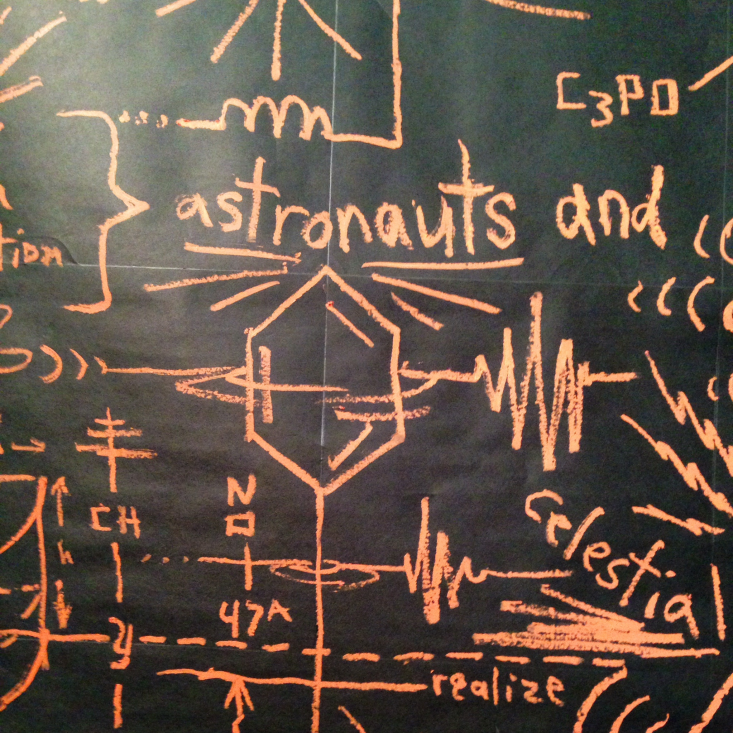 C3PO
astronauts and
tion
N
CH
celestial
47A
realize